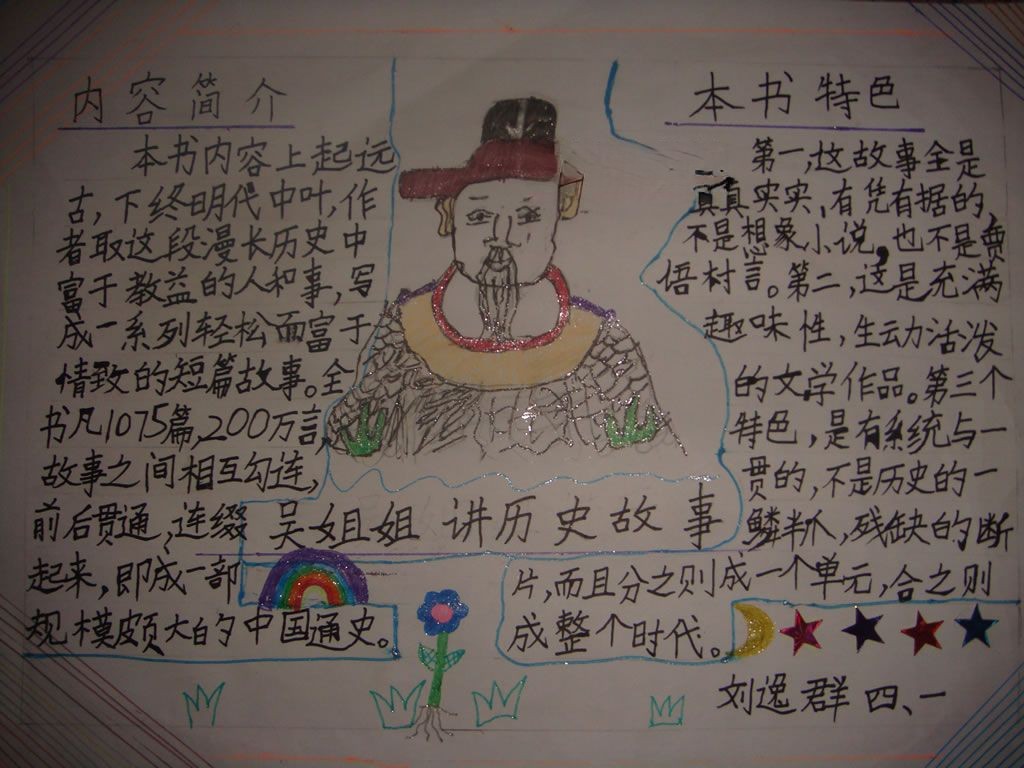 内容简介
本书内容上起远
古,下终明代中叶,作
者取这段漫长历史中
富于教益的人和事,写
成一系列轻松而富于
情致的短篇故事。全
书凡1075篇,200万言,
故事之间相互勾连,
前后贯通,连缀
起来,即成一部
规模颇大的中国通史。
吴姐姐讲历史故事
本书特色
第一,这故事全是
真真实实、有凭有据的,
不是想象小说,也不是
村言。第二,这是充满
趣味性,生动活泼
的文学作品。第三个
特色,是有系统与一
贯的,不是历史的一
鳞半爪,残缺的断
片,而且分之则成一个单元,合之则
成整个时代。
刘逸群 四、一